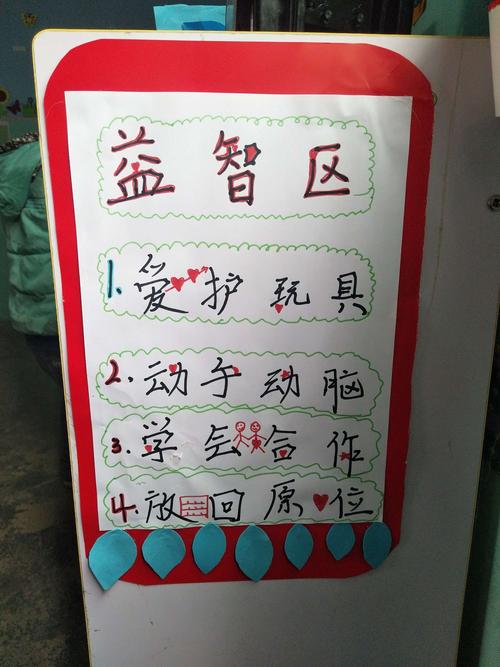 益智区
1. 爱护玩具
2. 动手动脑
3. 学会合作
4. 放回原位